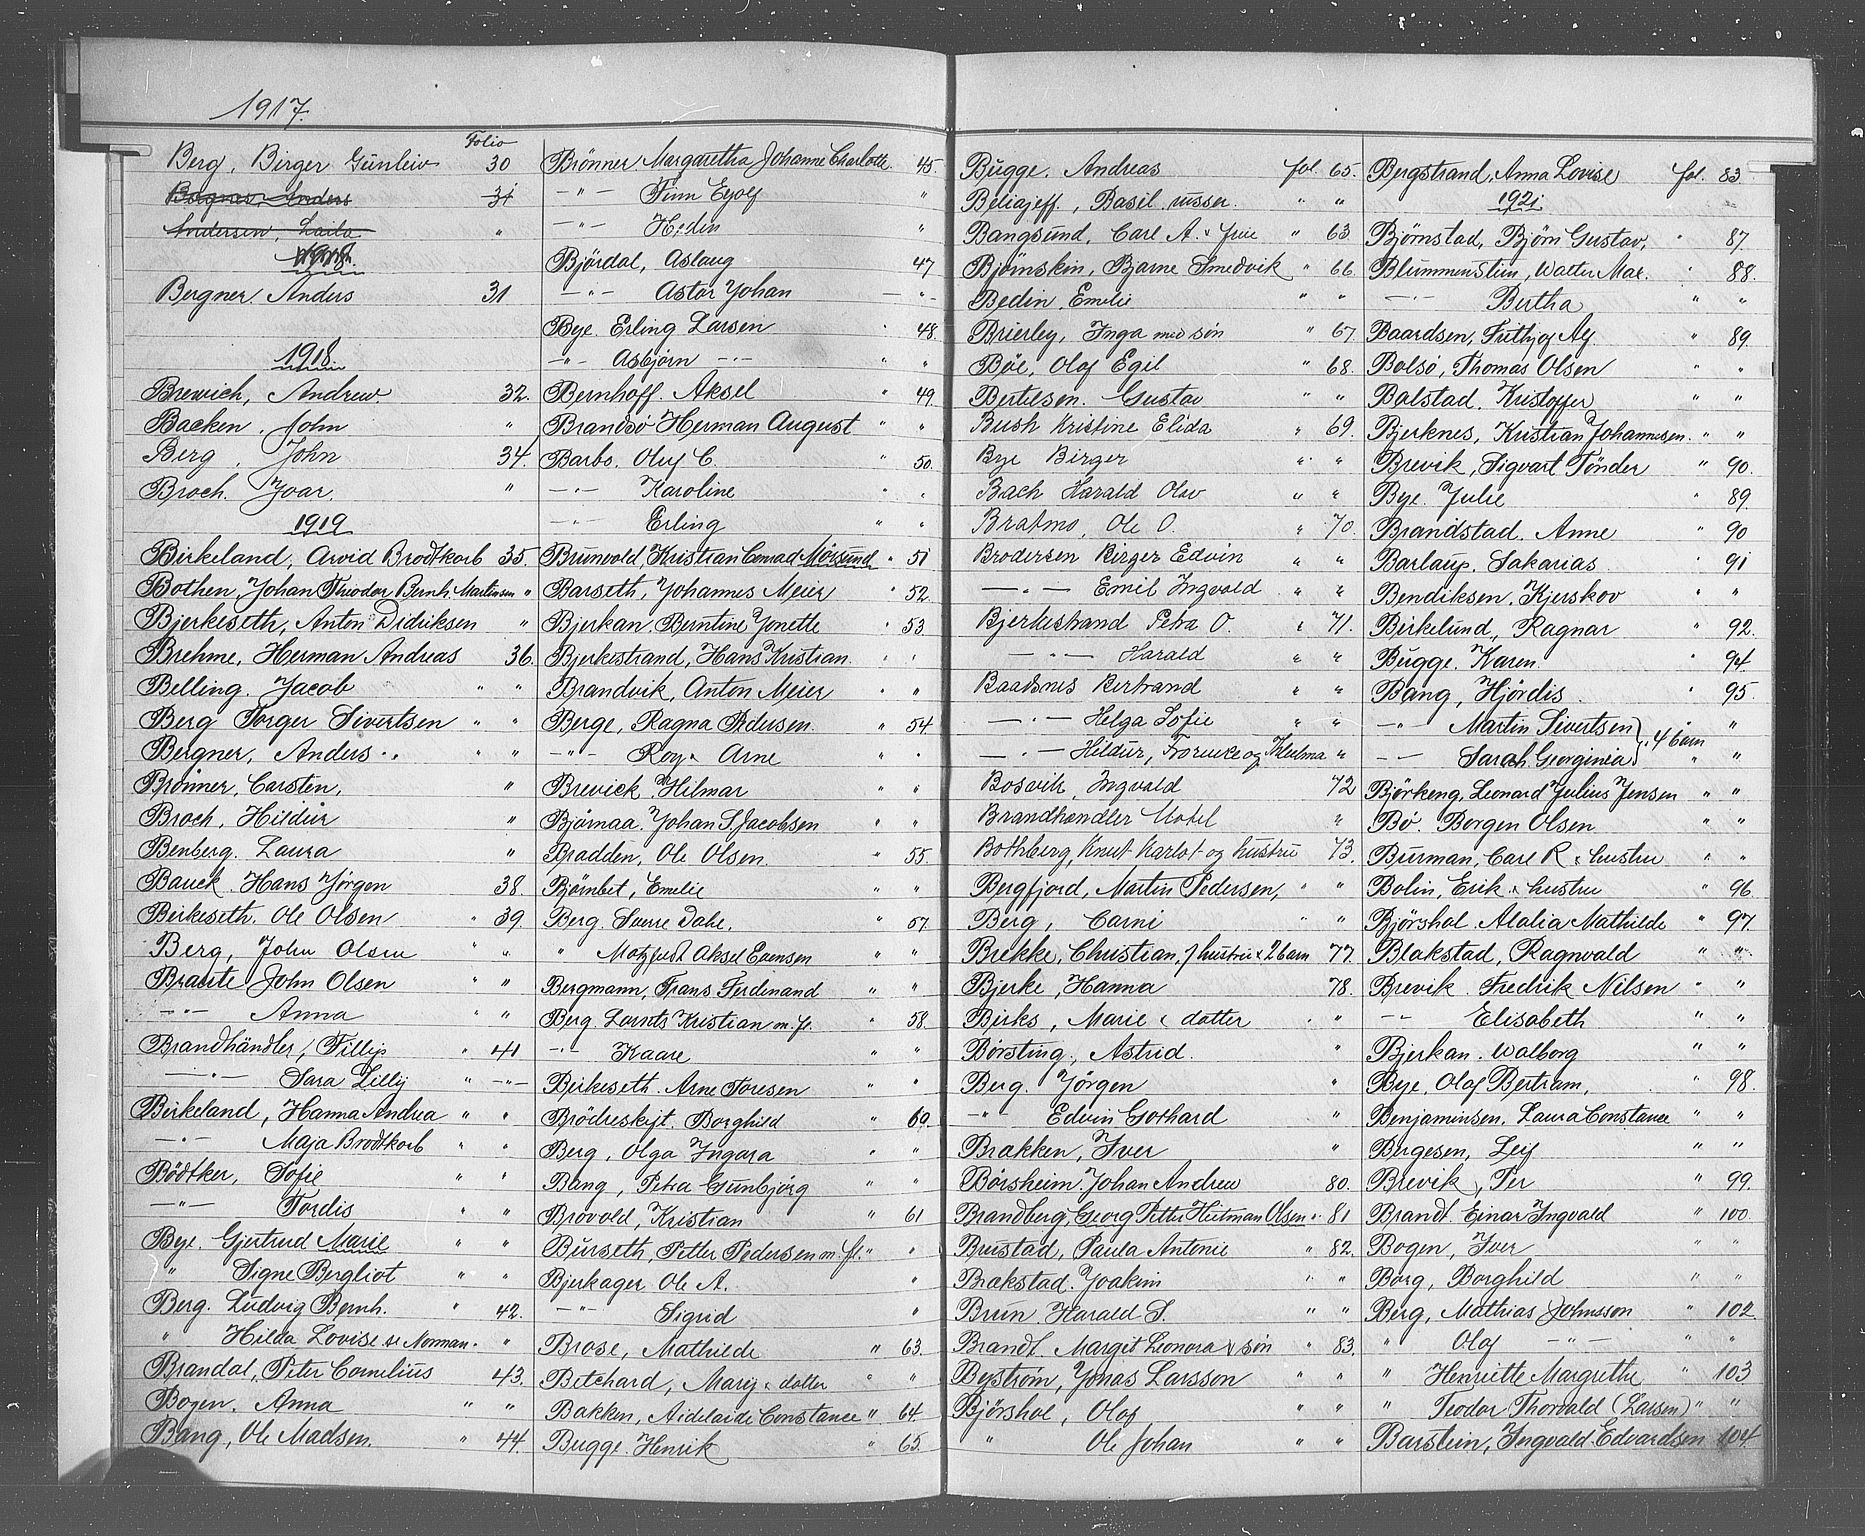 1917.
Folio
Berg, Birger Gunleiv 30
Bergner, Anders 31
Andersen, Laila "
1918.
Bergner. Anders 31
1918.
Brewich, Andrew 32.
Backen. John "
Berg, John 34.
Broch. Ivar. "
1919
Birkeland, Arvid Brodtkorb 35.
Bothen, Johan Theodor Bernh. Martinsen "
Bjerkeseth, Anton Didriksen "
Brehme, Herman Andreas 36.
Belling. Jacob " "
Berg Torger Sivertsen " "
Bergner, Anders " "
Brønner, Carsten, "
Broch, Hildur "
Benberg. Laura "
Bauck. Hans Jørgen 38.
Birkeseth. Ole Olsen " 39.
Berg, John Olsen " "
Braute John Olsen " "
—"— Anna " "
Brandhändler, Fillip " 41
—"— Sara Lilly " —"—
Birkeland, Hanna Andrea " "
—"— Maja Brodtkorb " "
Bödtker, Sofie " "
—"— Tordis " "
Bye. Gjertrud Marie " "
" Signe Bergliot " "
Berg. Ludvig Bernh. " 42.
" Hilda Lovise Norman "
Brandal, Peter Cornelius 43.
Bogen. Anna " "
Bang, Ole Madsen. " 44.
Brønner. Margaretha Johanne Charlotte 45.
—"— Finn Eyolf "
—"— Hedin "
Bjørdal, Aslaug 47
—"— Astor Johan — " —
Bye. Erling Larsen " 48.
—"— Asbjørn —"— " "
Bernhoff. Aksel " 49.
Brandsö Herman August " "
Barbo. Oluf C. " 50.
—"— Karoline " "
—"— Erling " "
Brunvold, Kristian Conrad Mørsund " 51
Barseth, Johannes Meier " 52.
Bjerkan. Berntine Jonette " 53.
Bjerkestrand, Hans Kristian. " "
Brandvik, Anton Meier " "
Berge, Ragna Pedersen. " 54
—"— Roy Arne " "
Brevick Hilmar " "
Bjørnaa. Johan S. Jacobsen " "
Bradden, Ole Olsen. " 55.
Bjørnbet, Emelie " "
Berg. Sverre Dahl. " 57.
" Motzfeldt Aksel Evensen " "
Bergmann, Frans Ferdinand " "
Berg. Lornts Kristian m. fl. " 58.
—"— Kaare " "
Birkeseth. Arne Toresen " "
Brödreskift. Borghild " 60.
Berg, Olga Ingara " "
Bang, Petra Gunbjørg " "
Brovold, Kristian " 61
Burseth, Petter Pedersen m. fl. " "
Bjerkager Ole A. "
—"— Sigrid "
Brose, Mathilde " 63.
Betchard, Mary & datter " "
Bakken, Aidelaide Constance " 64.
Bugge. Henrik " 65.
Bugge. Andreas fol. 65.
Beliajeff, Basil. russer. " "
Bangsund, Carl A. & frue " 63
Bjørnskin, Bjarne Smedvik " 66.
Bedin. Emelie " "
Brierley, Inga med søn " 67
Böe, Olaf Egil " 68.
Bertelsen. Gustav
Bush Kristine Elida " 69.
Bye Birger " "
Bach Harald Olav " "
Bratmo, Ole O. " 70.
Brodersen Birger Edvin " "
—"— Emil Ingvald " "
Bjerkestrand Petra O. " 71.
—"— Harald " "
Baadsnes Bertrand " "
—"— Helga Sofie " "
—"— Hildur, og Thelma "
Bosvik, Ingvald 72
Brandhendler Motel "
Bothberg, Knut Karlot og hustru 73.
Bergfjord, Martin Pedersen, " "
Berg, Carni " "
Brekke, Christian, hustru & 2 barn 77.
Bjerke, Hanna 78.
Birks, Marie & datter " "
Børsting. Astrid. "
Berg. Jörgen "
—"— Edvin Gothard "
Brakken, Iver "
Børsheim. Johan Andrew 80.
Brandberg, Georg Petter Hitman Olsen " 81
Brustad, Paula Antonie " 82.
Brakstad. Joakim " "
Brun Harald S. " "
Brandt. Margit Leonora & søn " 83.
Byström, Jonas Larsson " "
Bjørshol, Olaf " "
" Ole Johan " "
Bergstrand, Anna Lovise fol. 83.
1921
Bjørnstad, Bjørn Gustav, " 87
Blummenstein, Walter Max. " 88.
—"— Bertha " "
Baardsen, Frithjof Alf " 89.
Bolsö, Thomas Olsen " "
Balstad. Kristoffer " "
Bjerknes, Kristian Johannesen. " "
Brevik, Sigvart Tønder " 90.
Bye. Julie " 89
Brandstad. Anne " 90
Barlaup. Sakarias " 91
Bendiksen. Kjerskov " "
Birkelund, Ragnar " 92.
Bugge. Karen " 94.
Bang, Hjördis. " 95.
—"— Martin Sivertsen " "
4 barn
—"— Sarah Georginia " "
Björkeng, Leonard Julius Jensen " "
Bö. Borgen Olsen " "
Burman, Carl R & hustru " "
Bolin, Erik & hustru " 96
Bjørshol Alalia Mathilde " 97.
Blakstad, Ragnvald " "
Brevik. Fredrik Nilsen " "
—"— Elisabeth " "
Bjerkan. Walborg " "
Bye. Olaf Bertram, " 98.
Benjaminsen. Laura Constance " "
Bergesen, Leif " "
Brevik, Per " 99.
Brandt. Einar Ingvald " 100.
Bogen, Iver " "
Borg, Borghild " "
Berg, Mathias Johnsson " 102.
" Olaf —"— " "
" Henriette Margrethe " 103
" Teodor Thorvald (Larsen) " "
Barstein, Ingvald Edvardsen 104